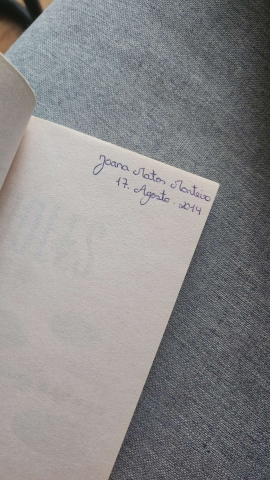 Joana Matos Monteiro
17. Agosto. 2014